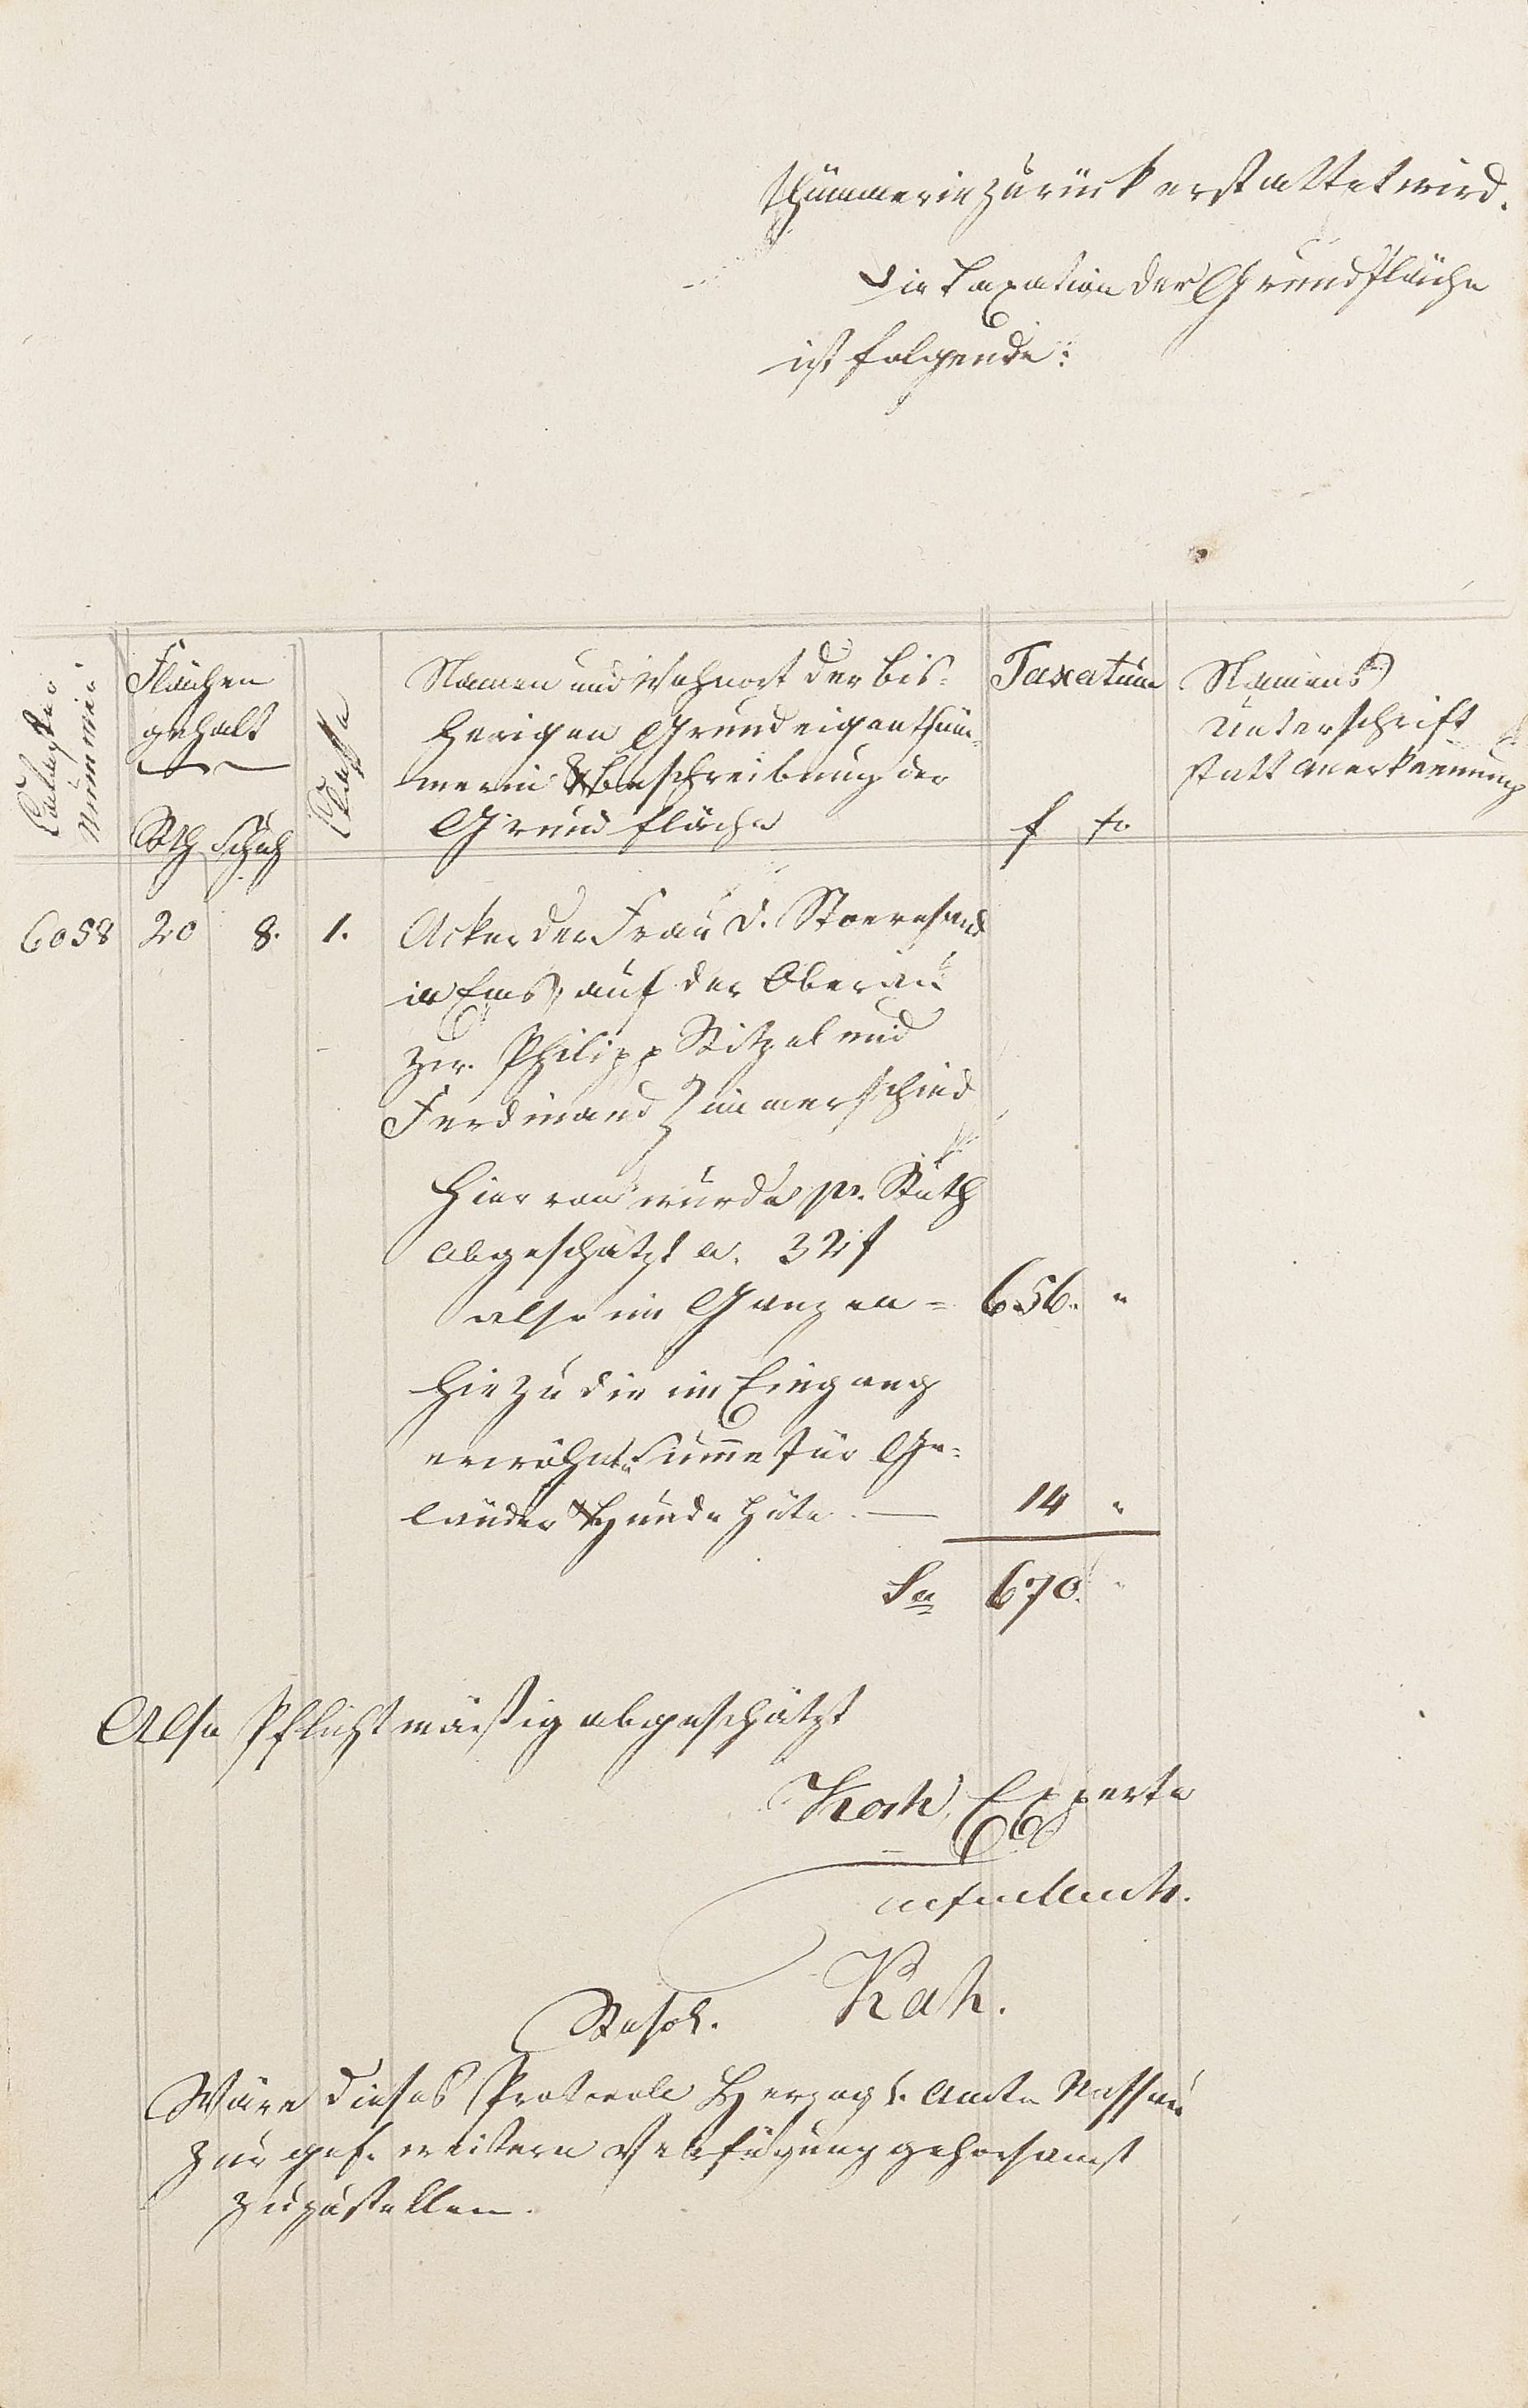 thümmerin zurück erstattet wird.
Die Taxation der Grundfläche
ist folgende:
Cataster
Nummer
Flächen
gehalt
Rth Schuh
Classe
Namen und Wohnort der bis-
herigen Grundeigenthüm-
merin & Beschreibung der
Grundfläche
Taxatum
f xr
Namens
Unterschrift
statt Anerkennung
6058 20 8. 1. Acker der Frau D.
in Ems, auf der Oberau
zw. Philipp Ritzel und
Ferdinand Zimmerschied
Hiervon wurde pr. Ruth
abgeschätzt a. 32 f
also im Ganzen = 656. "
Hiezu die im Eingang
erwähnte Summe für Ge-
länder & Hunde Hüte — 14 "
Sa 670. "
Also Pflichtmäßig abgeschätzt
Koch, Experte
Resol.
Wäre dieses Protocoll Herzogl. Amte Nassau
zur gef. weitern Verfügung gehorsamst
zuzustellen.